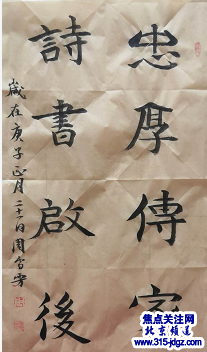 忠厚傳家
詩書啟後
歲在庚子正月二十一日周
焦点关注网
北京频道
www.315-jdgz.com